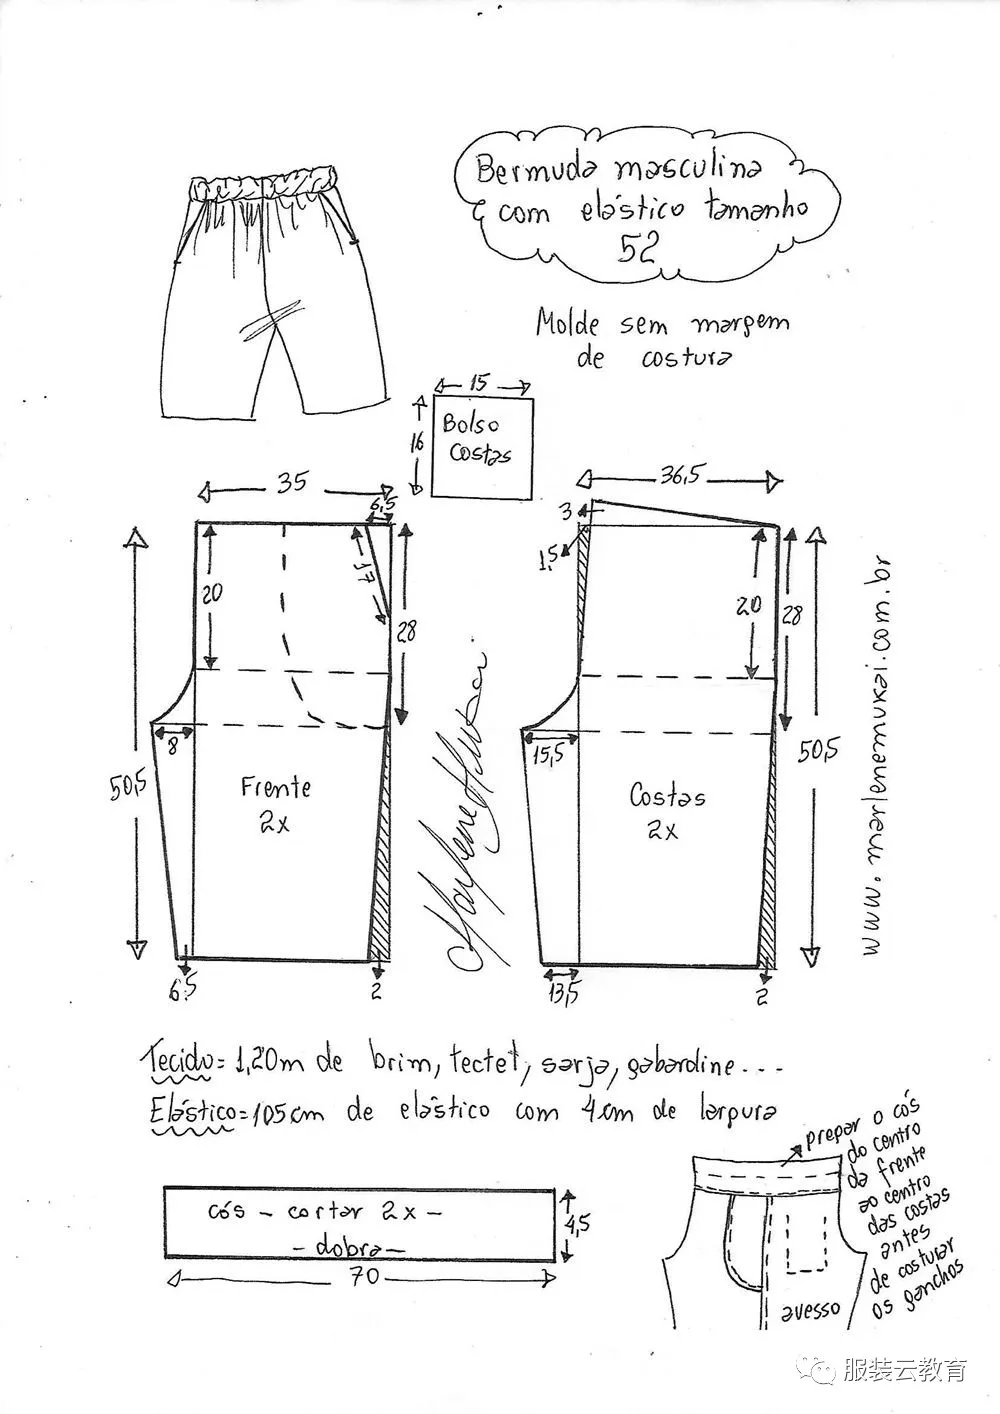 Bermuda masculina
com elástico tamanho
52
Molde sem margem
de costura
15
16
Bolso
costas
35
6,5
17
20
28
8
50,5
Frente
2x
6,5
2
36,5
3
1,5
20
28
15,5
50,5
Costas
2x
13,5
2
www.marlenemukai.com.br
Marlene Mukai
Tecido = 1,20m de brim, tectel, sarja, gabardine...
Elástico = 105cm de elástico com 4cm de largura
cós - cortar 2x -
- dobra -
4,5
70
prepar o cós
do centro
da frente
ao centro
das costas
antes
de costurar
os ganchos
avesso
服装云教育